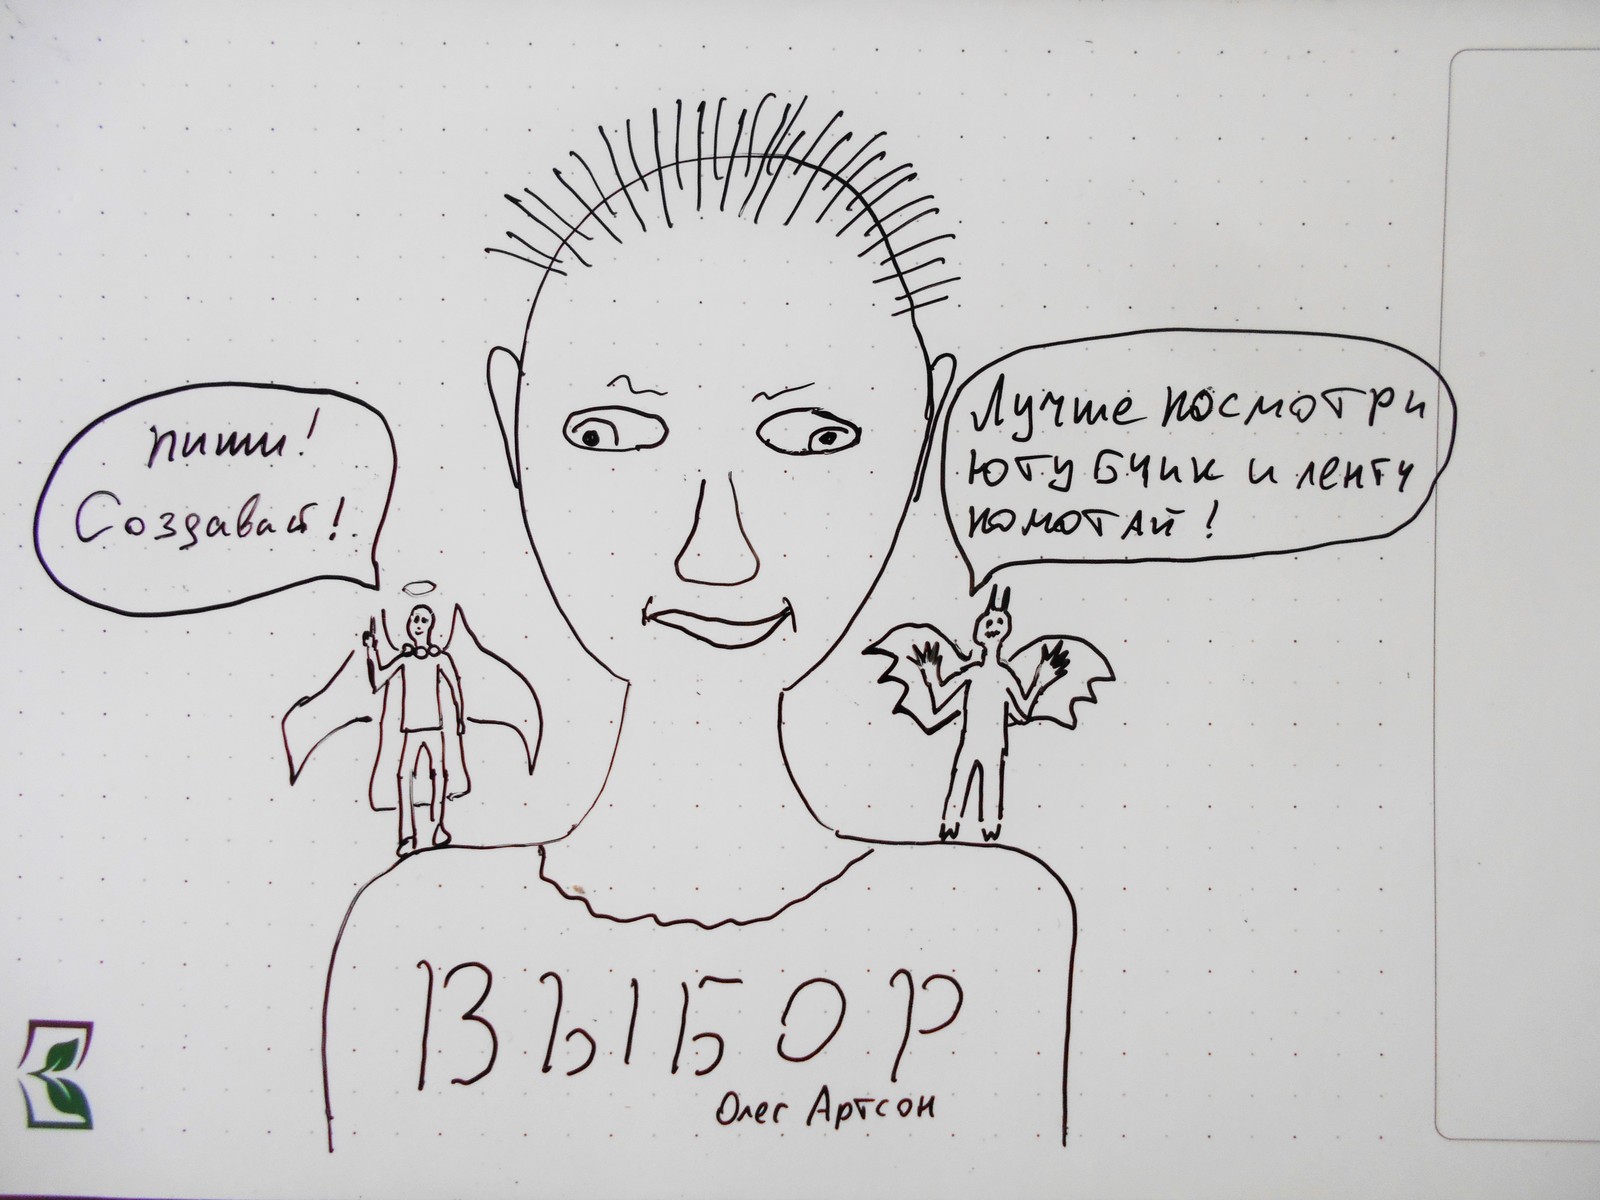 пиши!
Создавай!
Лучше посмотри
ютубчик и ленту
помотай!
ВЫБОР
Олег Артсон